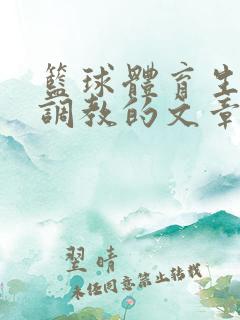 籃球體育生
調教的文章
翌晴
未经同意禁止转载